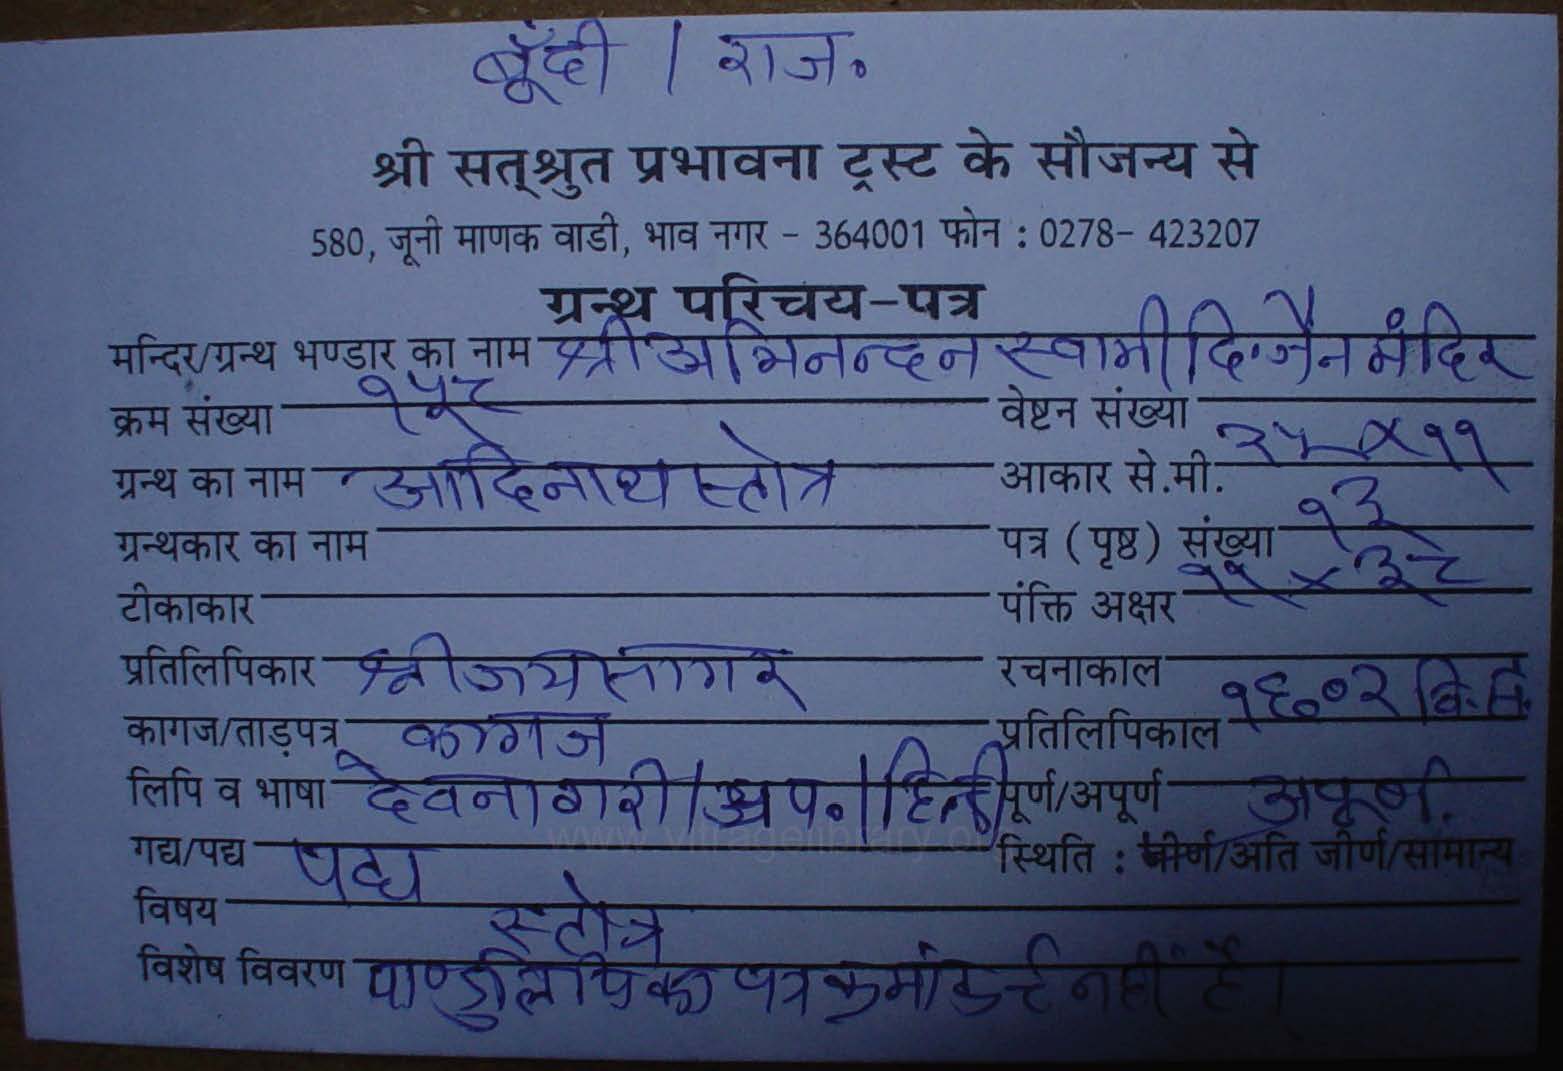 बूँदी / राज.
श्री सत्श्रुत प्रभावना ट्रस्ट के सौजन्य से
580, जूनी माणक वाडी, भाव नगर - 364001 फोन : 0278- 423207
ग्रन्थ परिचय-पत्र
मन्दिर/ग्रन्थ भण्डार का नाम श्री अभिनन्दन स्वामी दि. जैन मंदिर
क्रम संख्या १५८ वेष्टन संख्या
ग्रन्थ का नाम आदिनाथ स्तोत्र आकार से.मी. २५ x ११
ग्रन्थकार का नाम पत्र ( पृष्ठ ) संख्या १३
टीकाकार पंक्ति अक्षर ११ x ३८
प्रतिलिपिकार श्री जयसागर रचनाकाल
कागज/ताड़पत्र कागज प्रतिलिपिकाल १६०२ वि.सं.
लिपि व भाषा देवनागरी / अप. / हिन्दी पूर्ण/अपूर्ण अपूर्ण.
www.vitragelibrary.org
गद्य/पद्य पद्य स्थिति : जीर्ण/अति जीर्ण/सामान्य
विषय स्तोत्र
विशेष विवरण पाण्डुलिपि का पत्र क्रमांक ८ नहीं है।